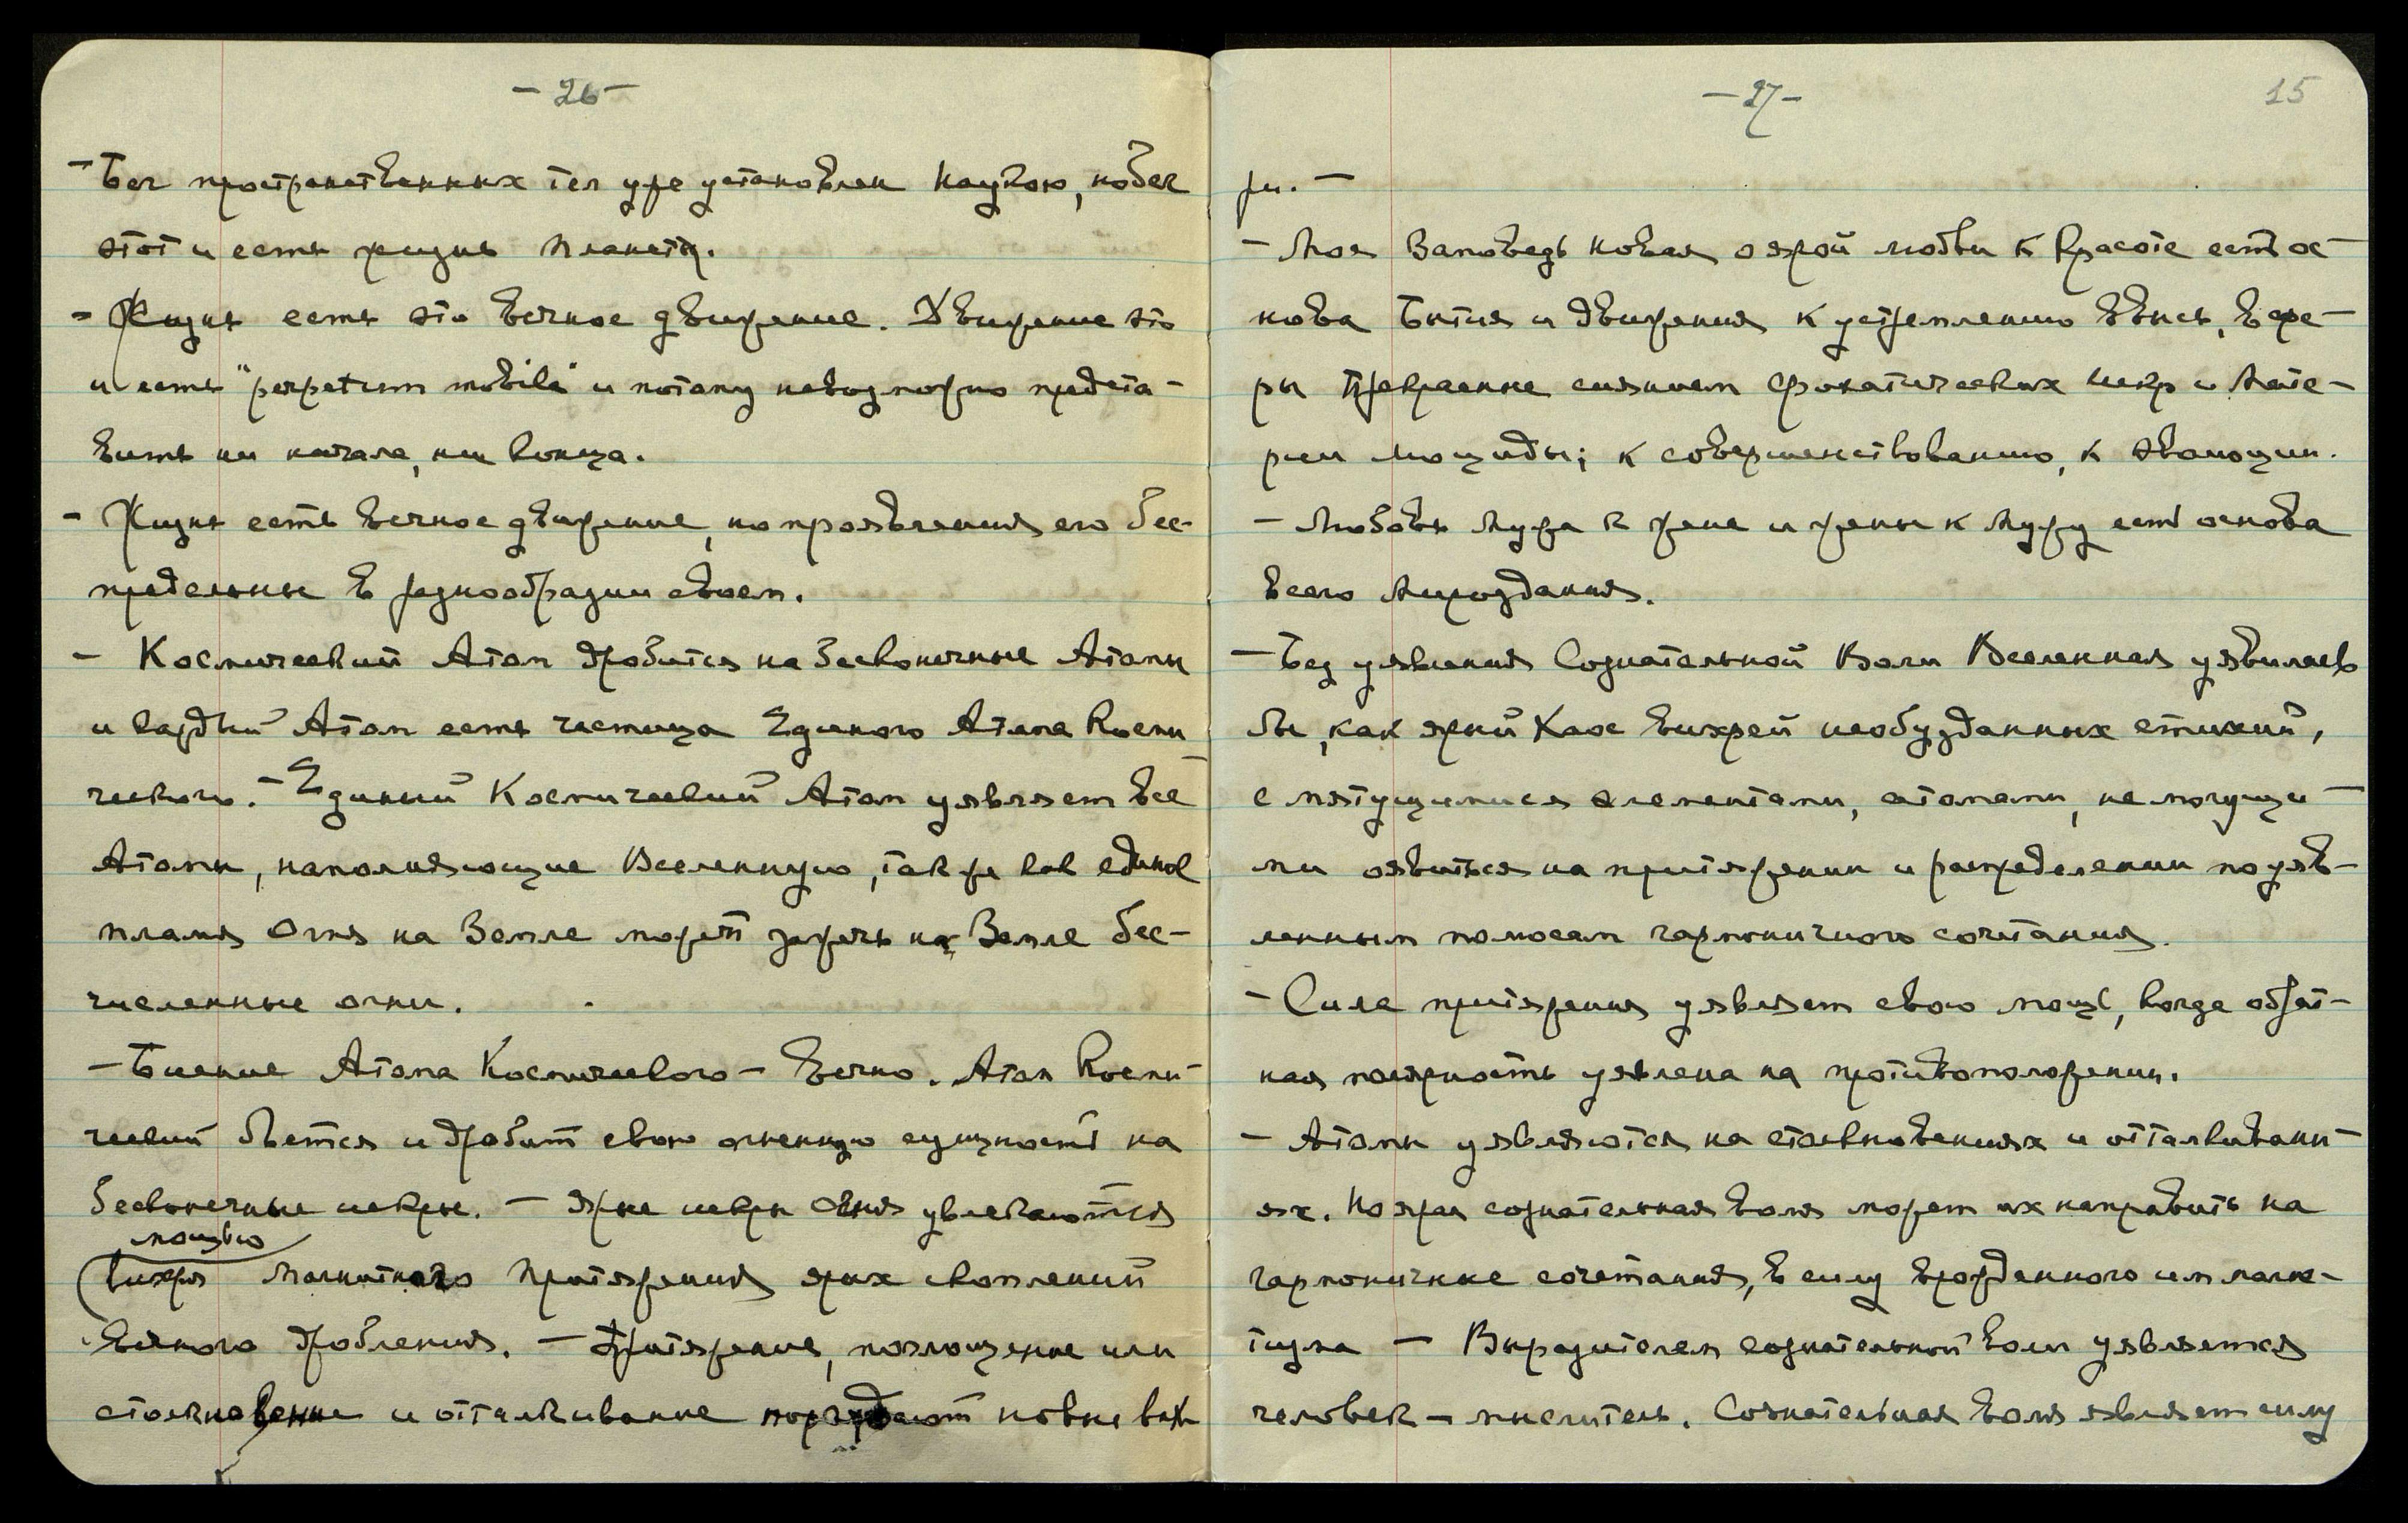 - 26 -
- Бег пространственных тел уже установлен Наукою, но бег
этот и есть жизнь планеты.
- Жизнь есть это вечное движение. Движение это
и есть "perpetum mobile" и потому невозможно предста-
вить ни начала, ни конца.
- Жизнь есть вечное движение, но проявления его бес-
предельны в разнообразии своем.
- Космический Атом дробится на бесконечные Атомы
и каждый Атом есть частица Единого Атома Косми-
ческого. - Единый Космический Атом уявляет все
Атомы, наполняющие Вселенную, так же как единое
пламя Огня на Земле может зажечь на Земле бес-
численные огни.
- Биение Атома Космического - Вечно. Атом Косми-
ческий бьется и дробит свою огненную сущность на
бесконечные искры. - Ярые искры Огня увлекаются
мощью
вихря Магнитного Притяжения ярых скоплений
вечного дробления. - Притяжение, поглощение или
столкновение и отталкивание порождают новые вих-
- 27 -
15
ри. -
- Моя Заповедь новая о ярой любви к Красоте есть ос-
нова Бытия и движения к устремлению ввысь, в сфе-
ры Прекрасные сиянием Фохатических Искр и Мате-
рии Люциды; к совершенствованию, к эволюции.
- Любовь Мужа к жене и жены к Мужу есть основа
всего Мироздания.
- Без уявления Сознательной Воли Вселенная уявилась
бы, как ярый Хаос вихрей необузданных стихий,
с мятущимися элементами, атомами, не могущи-
ми оявиться на притяжении и распределении по уяв-
ленным полюсам гармоничного сочетания.
- Сила притяжения уявляет свою мощь, когда обрат-
ная полярность уявлена на противоположении.
- Атомы уявляются на столкновениях и отталкивани-
ях. Но ярая сознательная воля может их направить на
гармоничные сочетания, в силу врожденного им магне-
тизма - Выразителем сознательной воли уявляется
человек - мыслитель. Сознательная воля являет силу